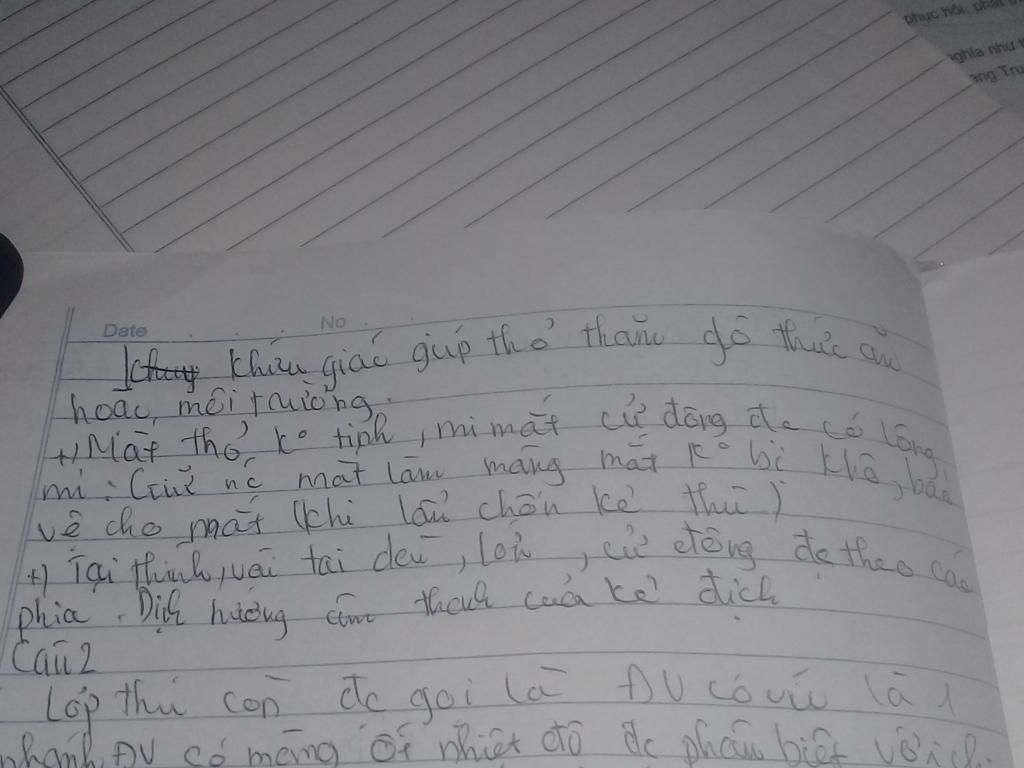 phục hồi, phát
nghĩa như
ang Tru
Date No
khứu giác giúp thỏ thăm dò thức ăn
hoặc môi trường.
+) Mắt thỏ ko tinh, mi mắt cử động đc có lông
mi: Giữ nc mắt làm màng mắt ko bị khô, bảo
vệ cho mắt (khi lẩn chốn kẻ thù)
+) Tai thính, vành tai dài, lớn, cử động đc theo các
phía. Định hướng âm thanh của kẻ địch
Câu 2
Lớp thú còn đc gọi là ĐV có vú là 1
nhánh ĐV có màng ối nhiệt độ đc phân biệt với